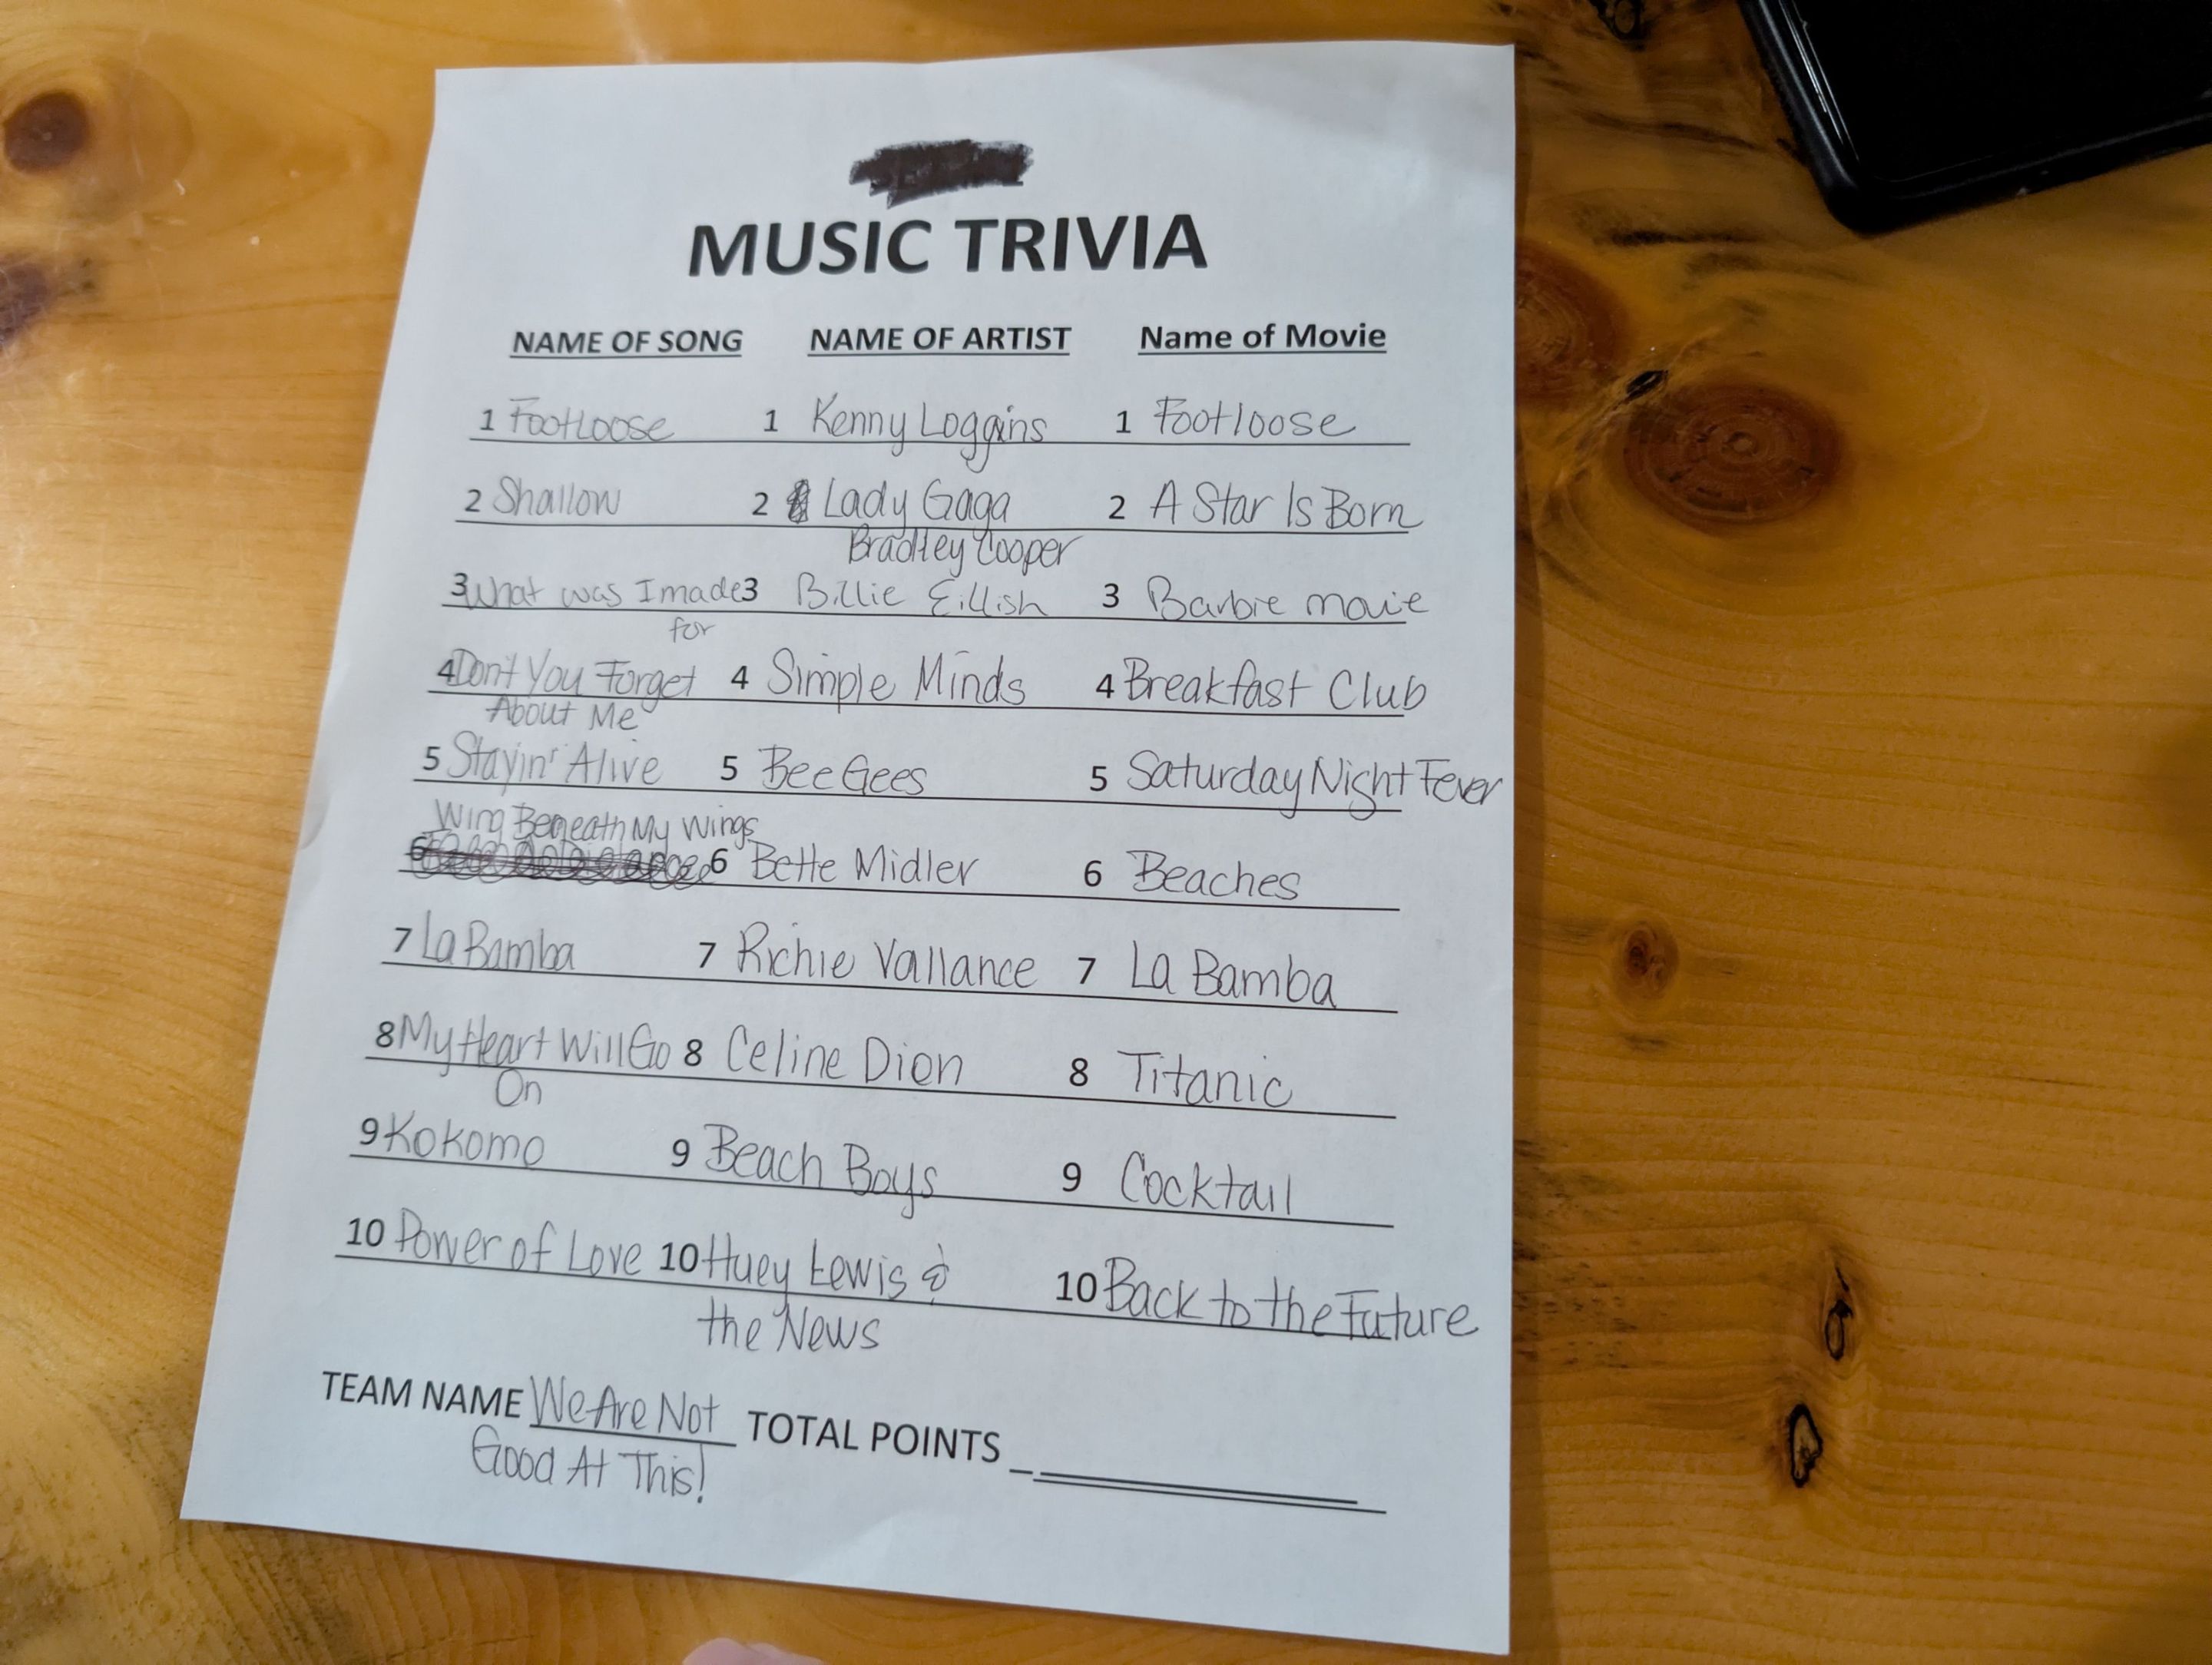 MUSIC TRIVIA
NAME OF SONG NAME OF ARTIST Name of Movie
1 Footloose 1 Kenny Loggins 1 Footloose
2 Shallow 2 Lady Gaga 2 A Star Is Born
Bradley Cooper
3 What was I made 3 Billie Eillish 3 Barbie movie
for
4 Don't You Forget 4 Simple Minds 4 Breakfast Club
About Me
5 Stayin' Alive 5 Bee Gees 5 Saturday Night Fever
Wing Beneath My Wings
6 6 Bette Midler 6 Beaches
7 La Bamba 7 Richie Vallance 7 La Bamba
8 My Heart Will Go 8 Celine Dion 8 Titanic
On
9 Kokomo 9 Beach Boys 9 Cocktail
10 Power of Love 10 Huey Lewis & 10 Back to the Future
the News
TEAM NAME We Are Not TOTAL POINTS
Good At This!